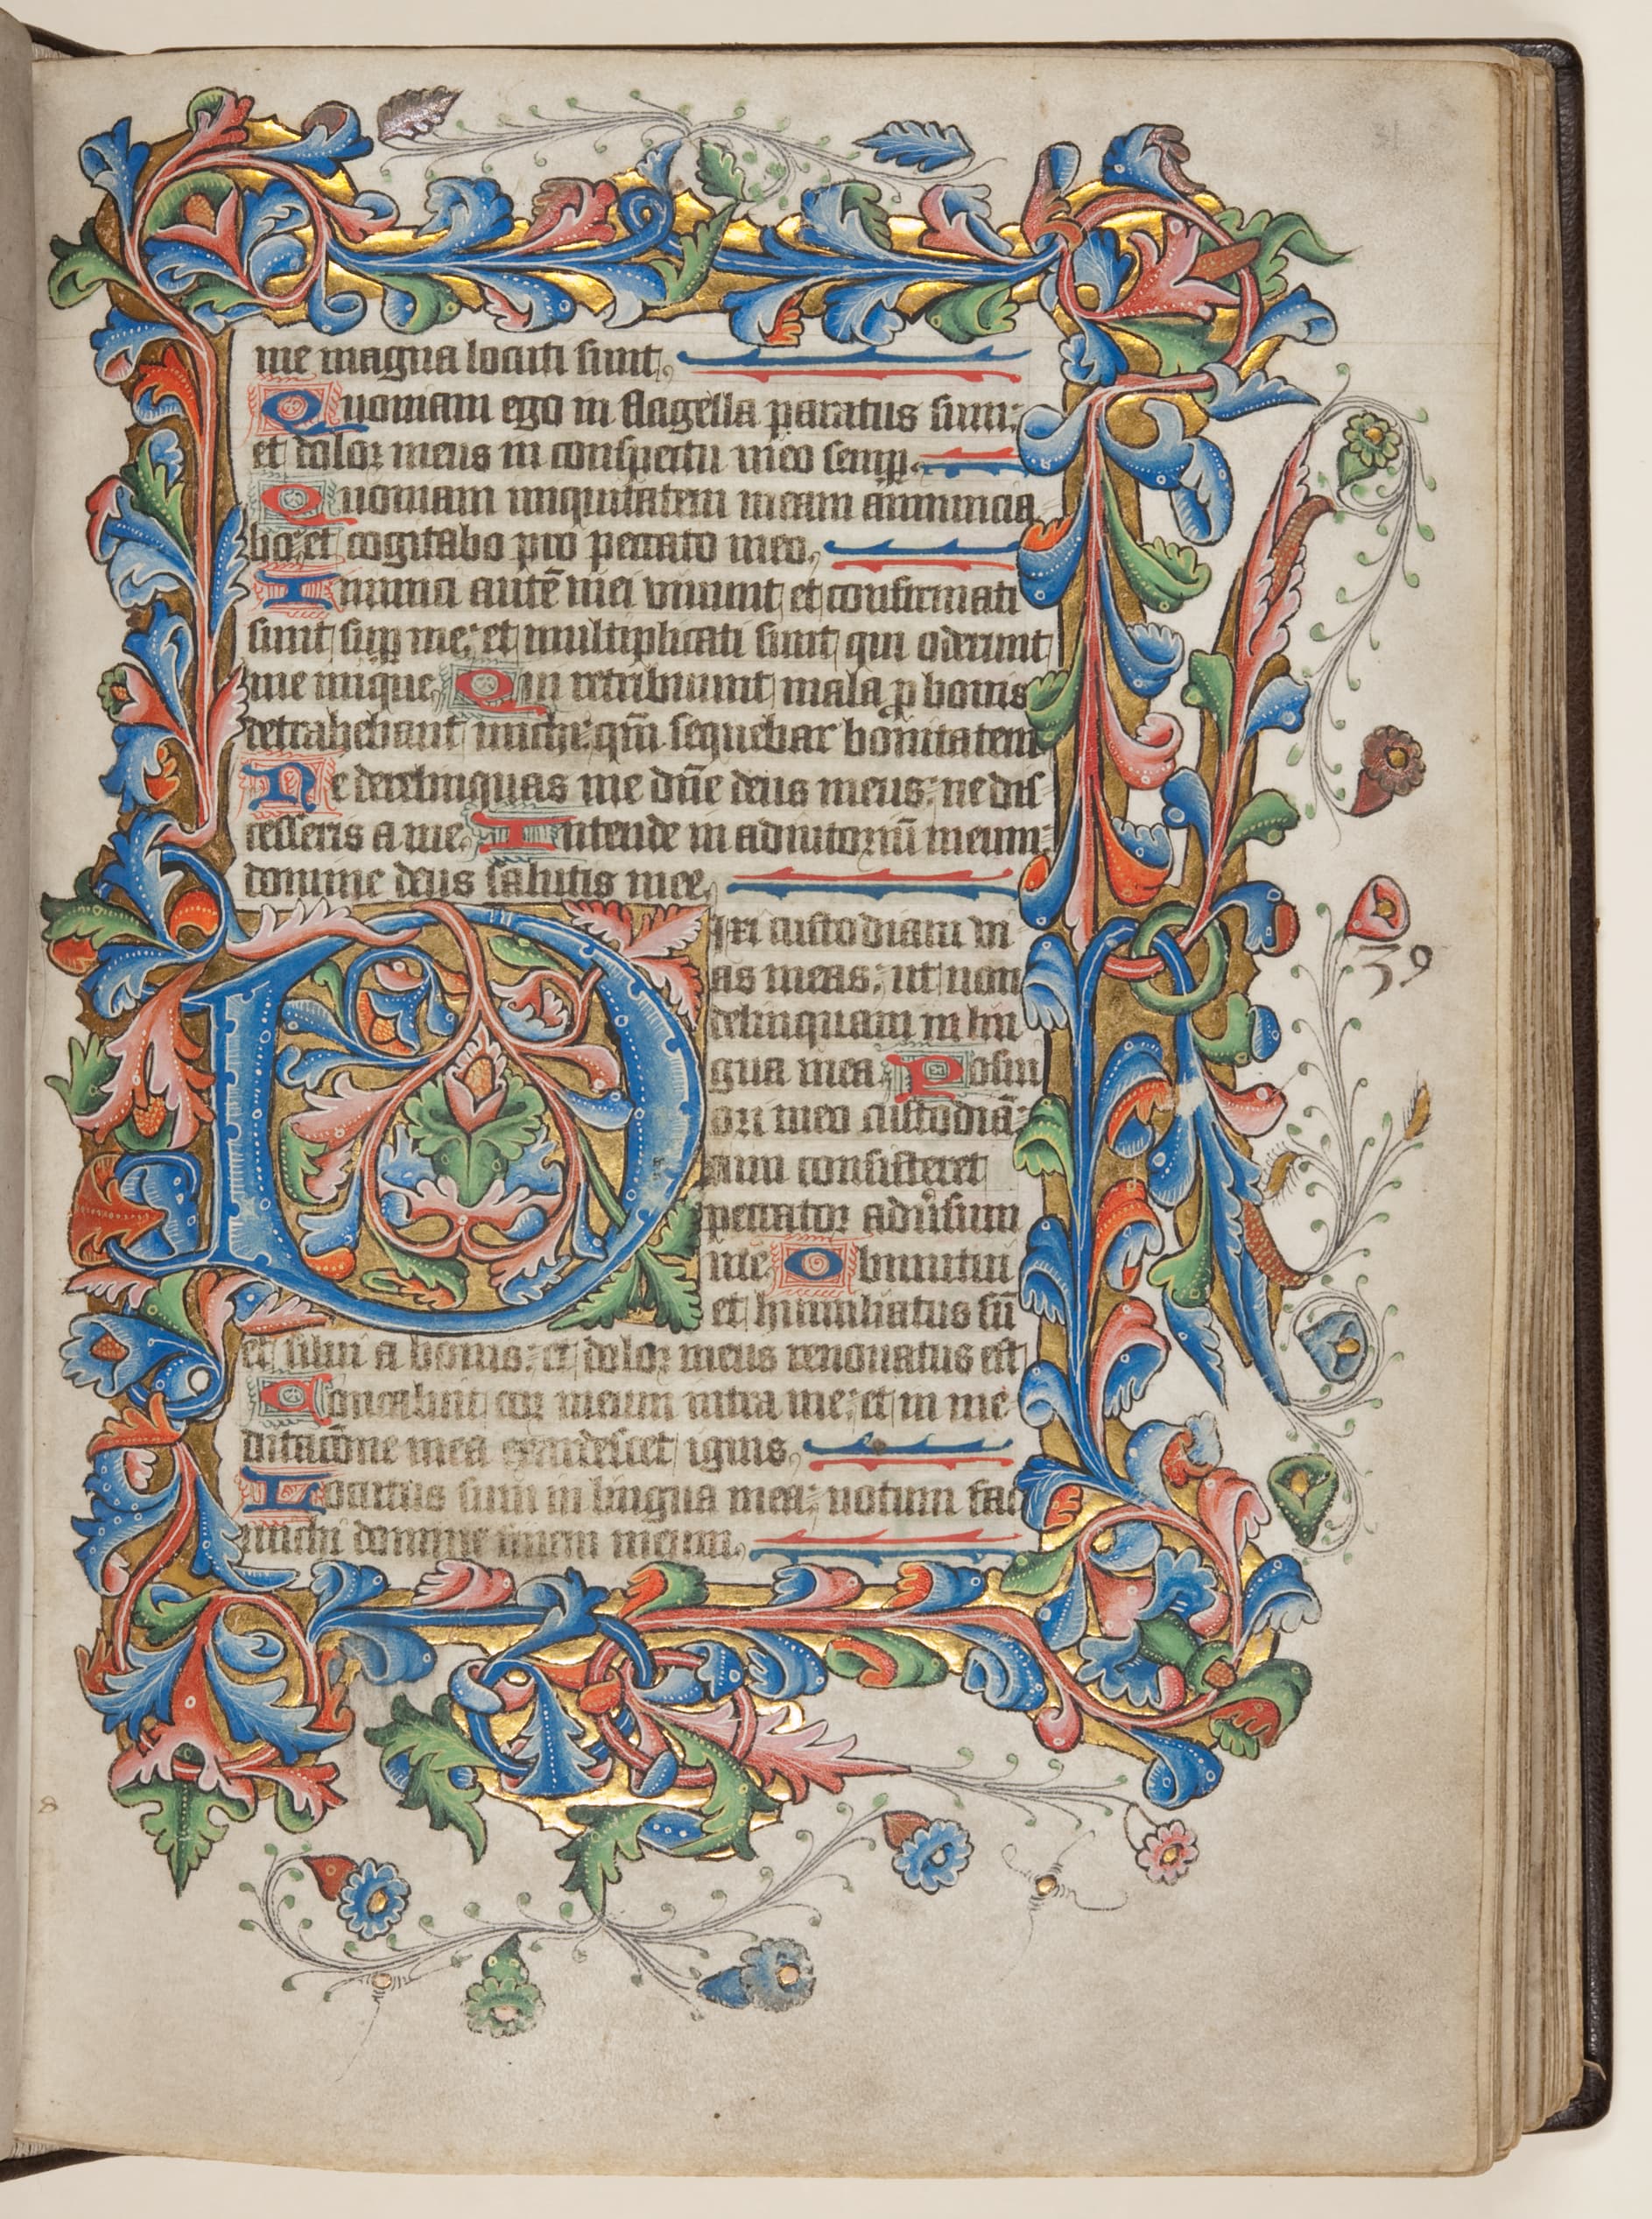 31
me magna locuti sunt,
Quoniam ego in flagella paratus sum:
et dolor meus in conspectu meo semp.
Quoniam iniquitatem meam annuncia
bo: et cogitabo pro peccato meo,
Inimici autē mei vivunt et confirmati
sunt sup me: et multiplicati sunt qui oderunt
me inique, Qui retribuunt mala p bonis
detrahebant michi: qm̄ sequebar bonitatem
Ne derelinquas me dn̄e deus meus: ne dis
cesseris a me, Intende in adiutoriū meum:
domine deus salutis mee,
Dixi custodiam vi
as meas: ut non
delinquam in lin
gua mea: Posui
ori meo custodiā:
cum consisteret
peccator adu̓sum
me, Obmutui
et humiliatus sū
et silui a bonis: et dolor meus renouatus est
Concaluit cor meum intra me: et in me
ditacōne mea exardescet ignis,
Locutus sum in lingua mea: notum fac
michi domine finem meum,
39